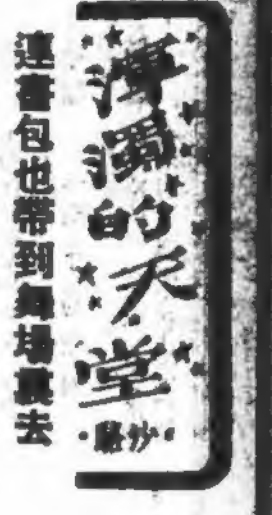 渾濁的天堂
·駱抄·
連書包也帶到舞場裏去